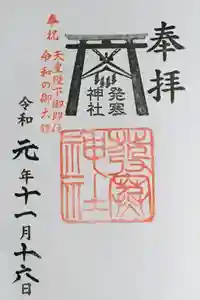 奉拝
発寒
神社
発寒
神社
奉祝
天皇陛下御即位
令和の御大礼
令和
元年十一月十六日